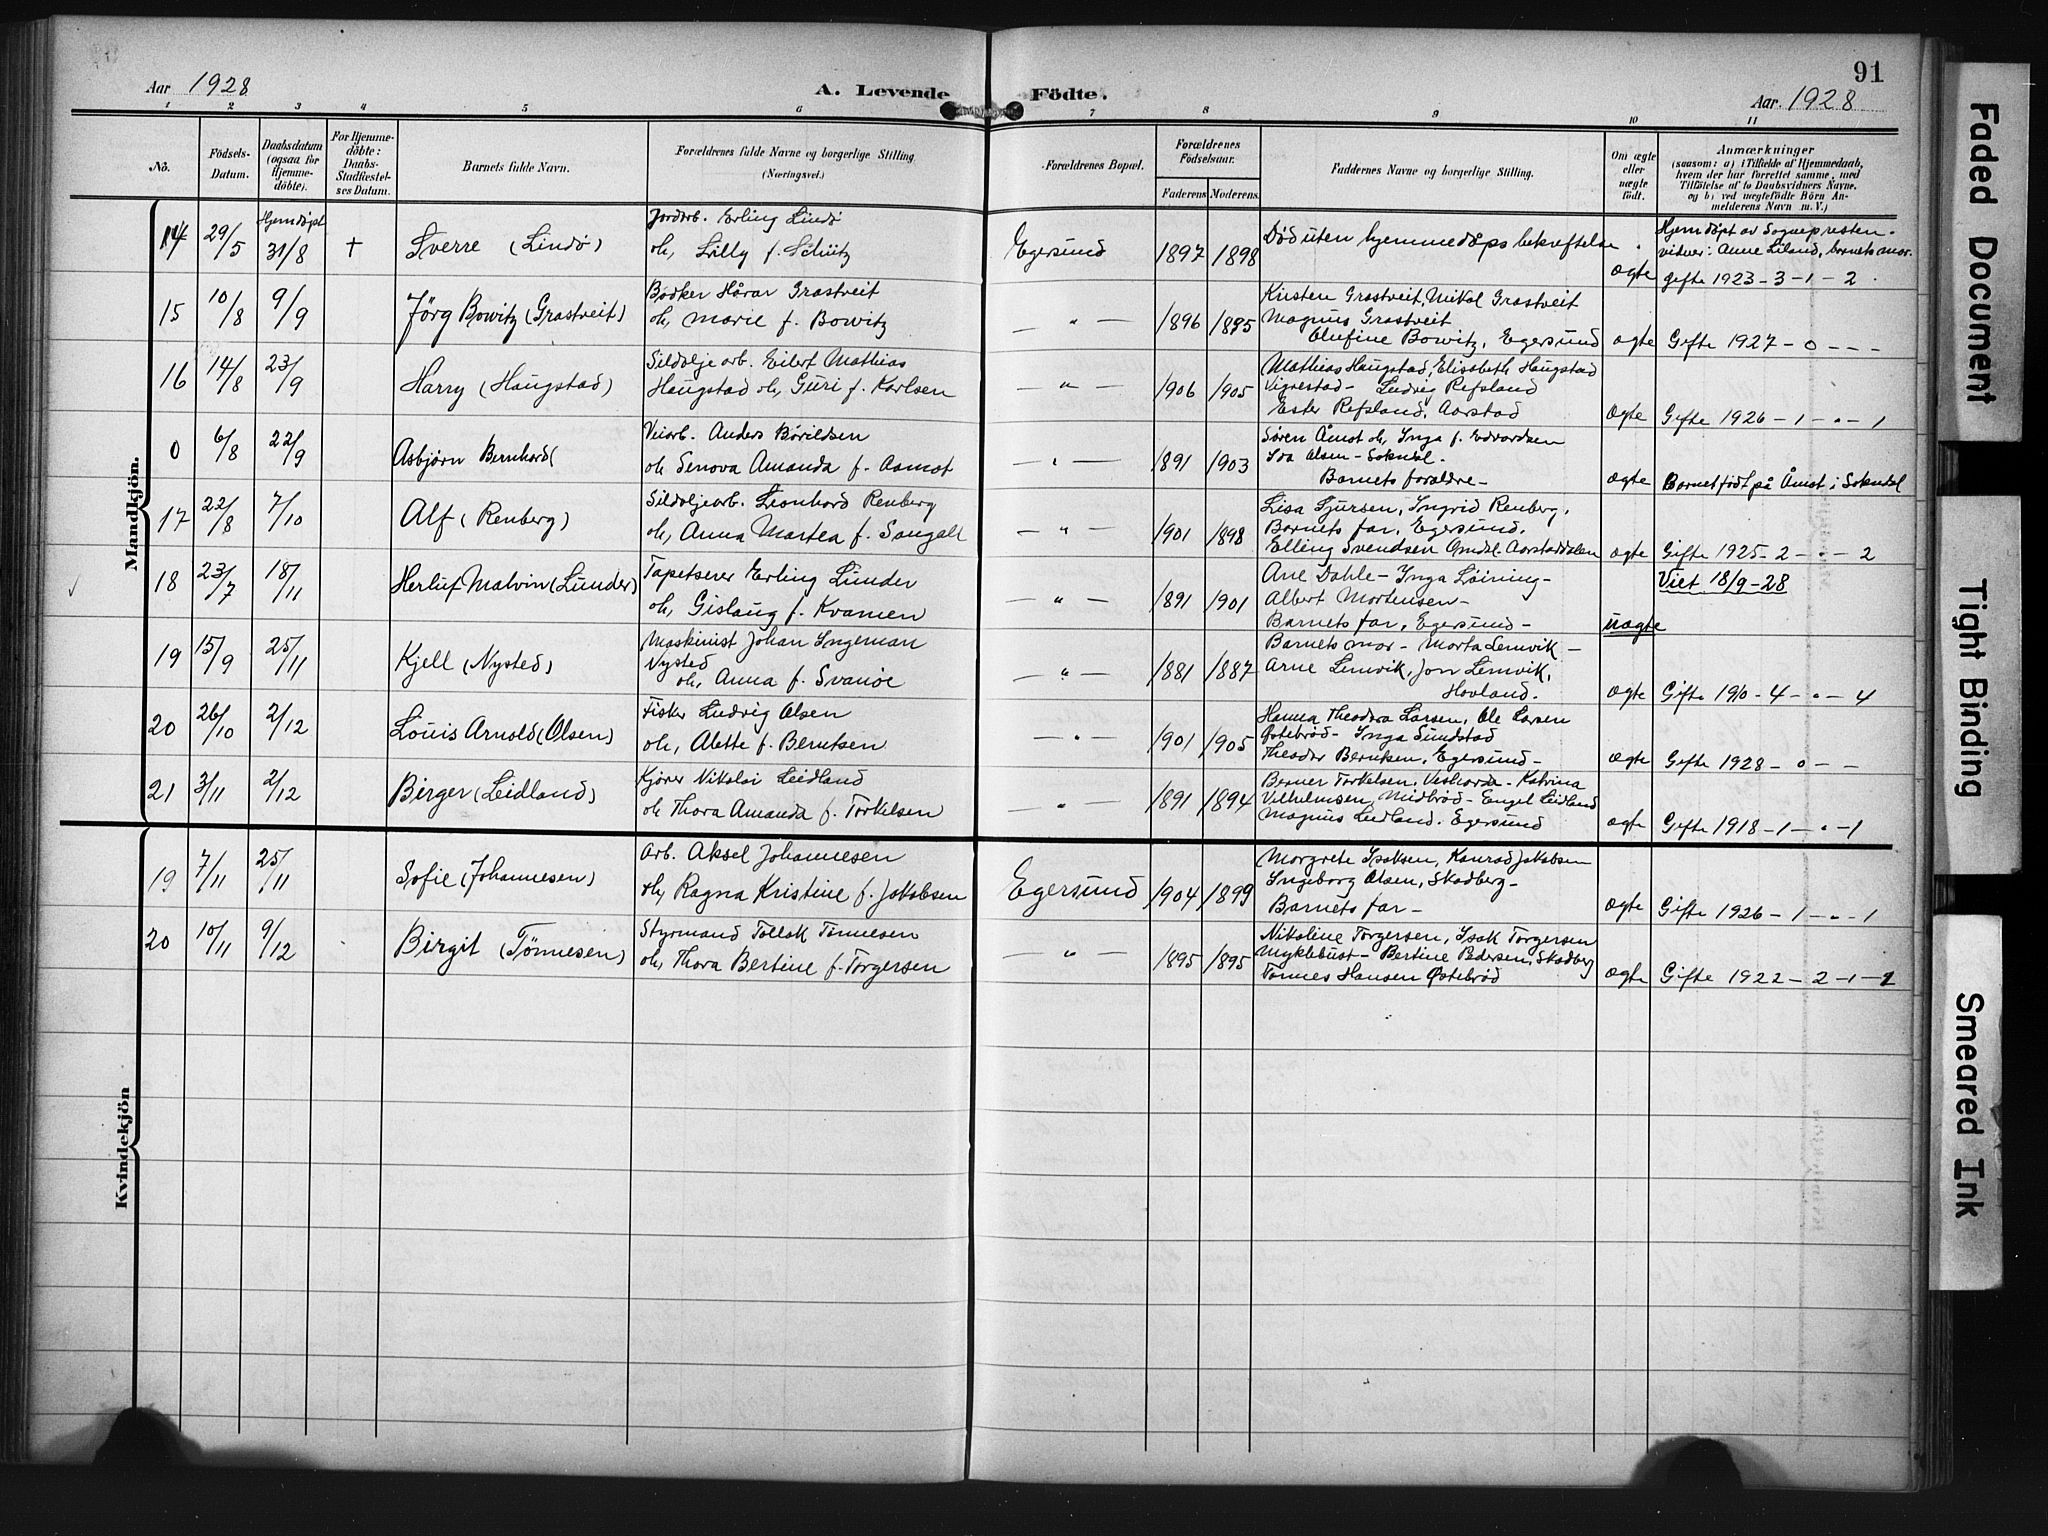 91
Aar 1928
A. Levende Födte.
Aar. 1928
1 2 3 4 5 6 7 8 9 10 11
No.
Födsels-
Datum.
Daabsdatum
(ogsaa for
Hjemme-
döbte).
For Hjemme-
döbte:
Daabs-
Stadfæstel-
ses Datum.
Barnets fulde Navn.
Forældrenes fulde Navne og borgerlige Stilling.
(Næringsvei.)
Forældrenes Bopæl.
Forældrenes
Födselsaar.
Faderens Moderens.
Faddernes Navne og borgerlige Stilling.
Om ægte
eller
uægte
født.
Anmærkninger
(saasom: a) i Tilfælde af Hjemmedaab,
hvem der har forrettet samme, med
Tilföielse af to Daabsvidners Navne,
og b) ved uægtefödte Börn An-
melderens Navn m. V.)
Mandkjön.
14 29/5 Hjemdöpt 31/8 † Sverre (Lindö)
Jordarb. Erling Lindö
oh, Lilly f. Schütz
Egersund 1897 1898
Död uten hjemmedåps bekreftelse.
ægte
Hjemdöpt av Sognepresten -
vidner: Anne Liland, barnets mor.
gifte 1923 - 3 - 1 - 2.
15 10/8 9/9 Jörg Bowitz (Grastveit)
Bödker Håvar Grastveit
oh, Marie f. Bowitz
— " — 1896 1895
Kirsten Grastveit, Mikal Grastveit
Magnus Grastveit
Olufine Bowitz, Egersund
ægte Gifte 1927 - 0 - - -
16 14/8 23/9 Harry (Haugstad)
Sildolje arb. Eilert Mathias
Haugstad oh, Guri f. Karlsen
— " — 1906 1905
Mathias Haugstad, Elisabeth Haugstad
Vigrestad - Ludvig Refsland
Ester Refsland, Aarstad
ægte Gifte 1926 - 1 - " - 1
0 6/8 22/9 Asbjørn Bernhard (
Veiarb. Anders Bövildsen
oh Senova Amanda f. Aamot
— " — 1891 1903
Sören Åmot oh, Inga f. Edvardsen
Iva Olsen - Sokndal -
Barnets foraldre -
ægte Barnet födt på Åmot i Sokndal
17 22/8 7/10 Alf (Renberg)
Sildoljearb. Leonhard Renberg
oh, Anna Martea f. Sangolt
— " — 1901 1898
Lisa Sjursen, Ingrid Renberg,
Barnets far, Egersund,
Elling Svendsen Omdal Aarstaddalen
ægte Gifte 1925 - 2 - " - 2
18 23/7 18/11 Herluf Malvin (Lunder)
Tapetserer Erling Lunder
oh, Gislaug f. Kvamen
— " — 1891 1901
Ane Dahle - Inga Löining -
Albert Mortensen -
Barnets far, Egersund -
uægte Viet 18/9 - 28
19 15/9 25/11 Kjell (Nysted)
Maskinist Johan Ingeman
Nysted
oh, Anna f. Svanöe
— " — 1881 1887
Barnets mor - Marta Lemvik -
Arne Lemvik, Jon Lemvik,
Hovland.
ægte Gifte 1910 - 4 - " - 4
20 26/10 2/12 Louis Arnold (Olsen)
Fisker Ludvig Olsen
oh, Alette f. Berntsen
— " — 1901 1905
Hanna Theodora Larsen, Ole Larsen
Östebröd - Inga Sundstad
Theodor Berntsen, Egersund -
ægte Gifte 1928 - 0 - -
21 3/11 2/12 Birger (Leidland)
Kjörer Nikolai Leidland
oh Thora Amanda f. Torkelsen
— " — 1891 1894
Berner Torkelsen, Veshovde - Katrina
Vilhelmsen Midbröd - Engel Leidland
Magnus Leidland. Egersund
ægte Gifte 1918 - 1 - " - 1
Kvindekjön
19 7/11 25/11 Sofie (Johannesen)
Arb. Aksel Johannesen
oh, Ragna Kristine f. Jakobsen
Egersund 1904 1899
Margrete Isaksen, Konrad Jakobsen
Ingeborg Olsen, Skadberg -
Barnets far -
ægte Gifte 1926 - 1 - " - 1
20 10/11 9/12 Birgit (Tönnesen)
Styrmand Tollak Tönnesen
oh, Thora Bertine f. Torgersen
— " — 1895 1895
Nikoline Torgersen, Isak Torgersen
Myklebust - Bertine Pedersen, Skadberg
Tönnes Hansen Östebröd
ægte Gifte 1922 - 2 - 1 - 1
Faded Document
Tight Binding
Smeared Ink